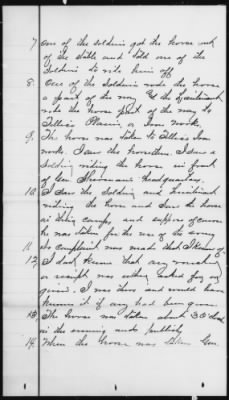 7 One of the soldiers got the horse out
of the stable and told one of the
soldiers to ride him off
8. One of the Soldiers rode the horse
a part of the way & the Lieutenant
rode the horse part of the way to
Plain, or Iron Works.
9. The horse was taken to Iron
works. I saw the horse there. I saw a
Soldier riding the horse in front
of Gen headquarters.
10. I saw the Soldier and Lieutenant
riding the horse and saw the horse
in their camps, and suppose of course
he was taken for the use of the army
11. No complaint was made that I know of
12. I dont know that any voucher
or receipt was either asked for or
given. I was there and would have
known it if any had been given
13. The horse was taken about 3 O'clock
in the evening and publicly
14. When the horse was taken Gen.